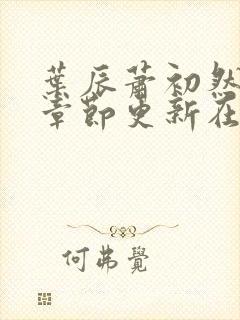 葉辰蕭初然
章節更新在
何弗覺